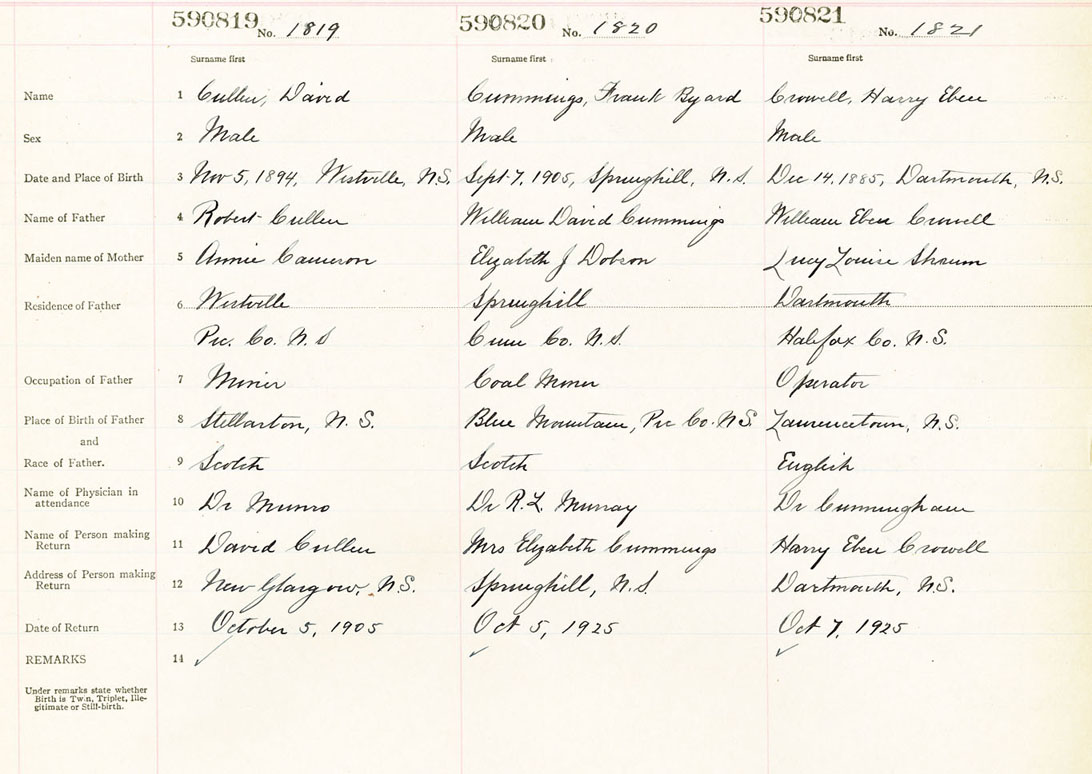 590819 No. 1819 590820 No. 1820 590821 No. 1821
Surname first Surname first Surname first
Name 1 Cullen, David Cummings, Frank Byard Crowell, Harry Eben
Sex 2 Male Male Male
Date and Place of Birth 3 Nov 5, 1894, Westville, N.S. Sept 7, 1905, Springhill, N.S. Dec 14, 1885, Dartmouth, N.S.
Name of Father 4 Robert Cullen William David Cummings William Eben Crowell
Maiden name of Mother 5 Annie Cameron Elizabeth J Dobson Lucy Louise Shrum
Residence of Father 6 Westville Springhill Dartmouth
Pic. Co. N.S Cum Co. N.S. Halifax Co. N.S.
Occupation of Father 7 Miner Coal Miner Operator
Place of Birth of Father 8 Stellarton, N.S. Blue Mountain, Pic Co. N.S Lawrencetown, N.S.
and
Race of Father. 9 Scotch Scotch English
Name of Physician in attendance 10 Dr Munro Dr R.L. Murray Dr Cunningham
Name of Person making Return 11 David Cullen Mrs Elizabeth Cummings Harry Eben Crowell
Address of Person making Return 12 New Glasgow, N.S. Springhill, N.S. Dartmouth, N.S.
Date of Return 13 October 5, 1905 Oct 5, 1925 Oct 7, 1925
REMARKS 14
Under remarks state whether
Birth is Twin, Triplet, Ille-
gitimate or Still-birth.